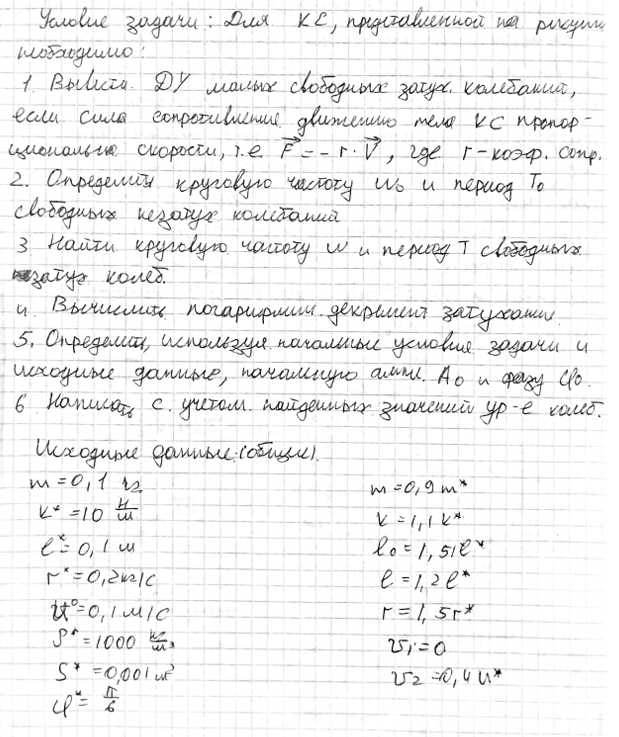 Условие задачи: Для КС, представленной на рисунке
необходимо:
1. Вывести ДУ малых свободных затух. колебаний,
если сила сопротивление движению тела КС пропор-
циональна скорости, т.е. F = - r · V, где r - коэф. сопр.
2. Определить круговую частоту ω₀ и период T₀
свободных незатух колебаний
3 Найти круговую частоту ω и период T свободных
затух колеб.
4 Вычислить логарифмич. декремент затухания
5. Определить, используя начальные условие задачи и
исходные данные, начальную ампл. A₀ и фазу φ₀.
6 Написать с учетом найденных значений ур-е колеб.
Исходные данные: (общие).
m = 0,1 кг
m = 0,9 m*
k* = 10 Н/м
k = 1,1 k*
l* = 0,1 м
l₀ = 1,51 l*
r* = 0,2 кг/с
l = 1,2 l*
U⁰ = 0,1 м/с
r = 1,5 r*
ρ* = 1000 кг/м³
v₁ = 0
S* = 0,001 м²
v₂ = 0,4 u*
φ* = π/6